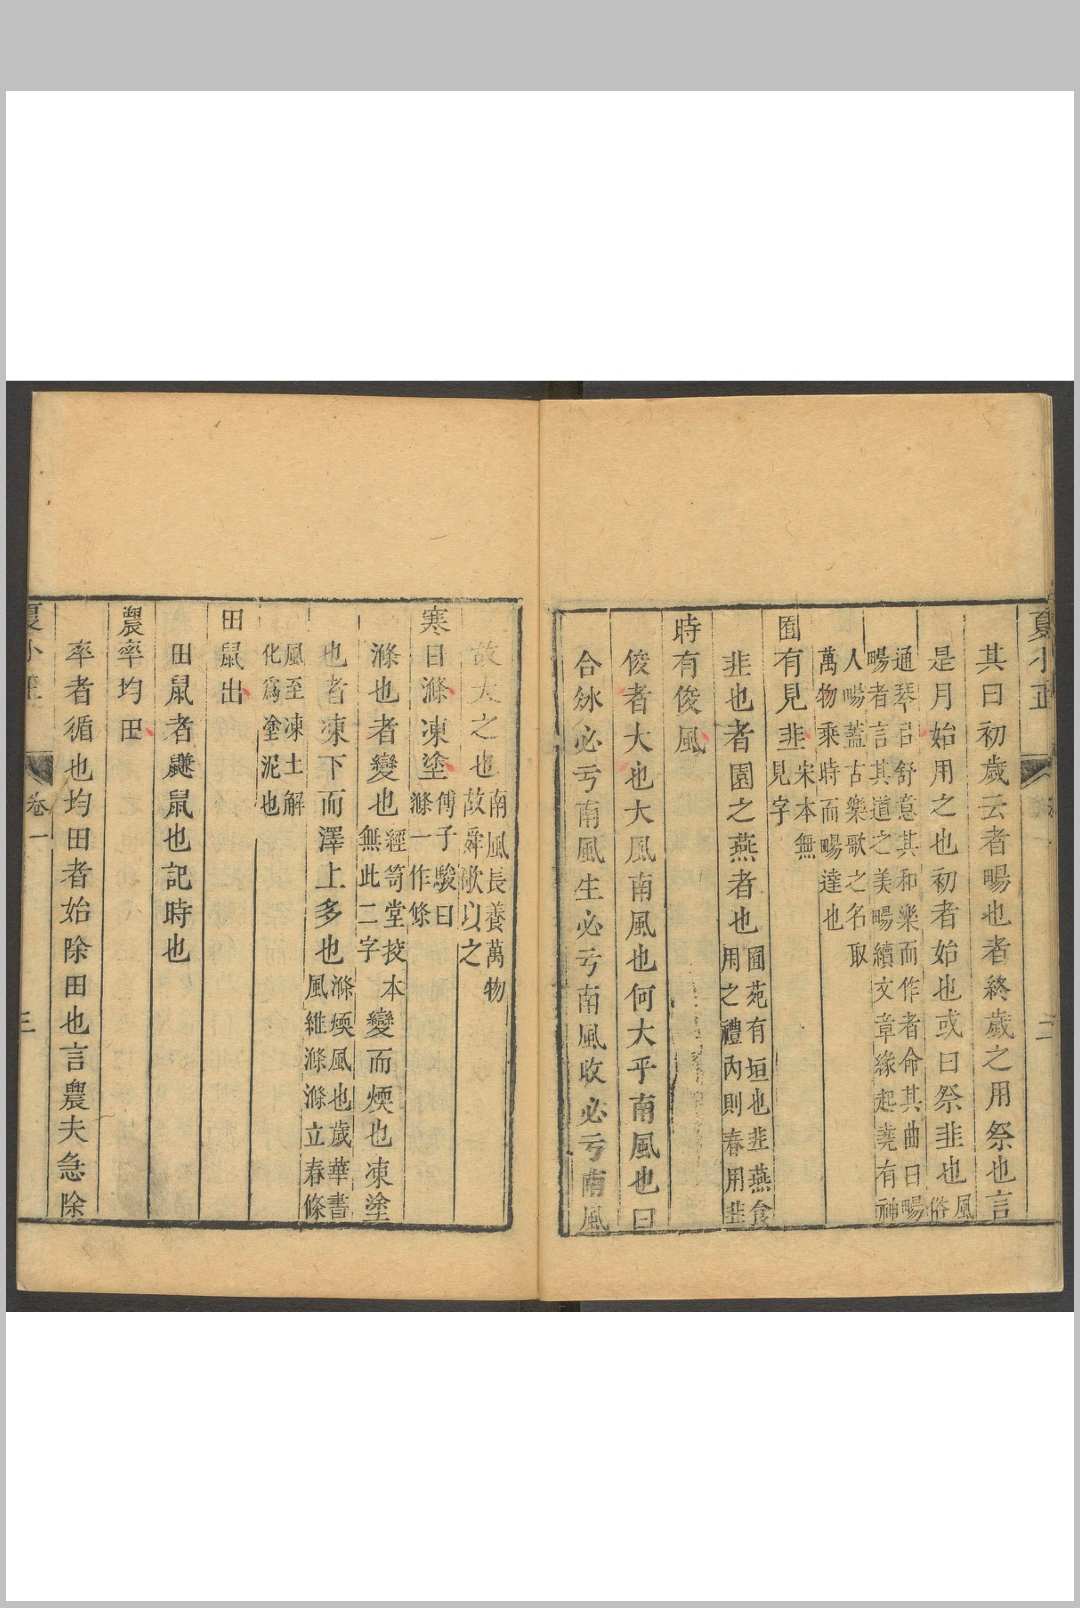 夏小正 二
其曰初歲云者暢也者終歲之用祭也言
是月始用之也初者始也或曰祭韭也風俗
通琴曰舒意其和樂而作者命其曲曰暢
暢者言其道之美暢續文章緣起堯有神
人暢蓋古樂歌之名取
萬物乘時而暢達也
囿有見韭宋本無見字
韭也者園之燕者也囿苑有垣也韭燕食用之禮內則春用韭
時有俊風
俊者大也大風南風也何大乎南風也曰
合冰必亏南風生必亏南風收必亏南風
故大之也南風長養萬物故舜歌以之
寒日滌凍塗傅子駿曰滌一作條
滌也者變也經笥堂挍本無此二字變而煗也凍塗
也者凍下而澤上多也滌煗風也歲華書風維滌滌立春條
風至凍土解
化爲塗泥也
田鼠出
田鼠者鼸鼠也記時也
農率均田
率者循也均田者始除田也言農夫急除
夏小正 卷一 三